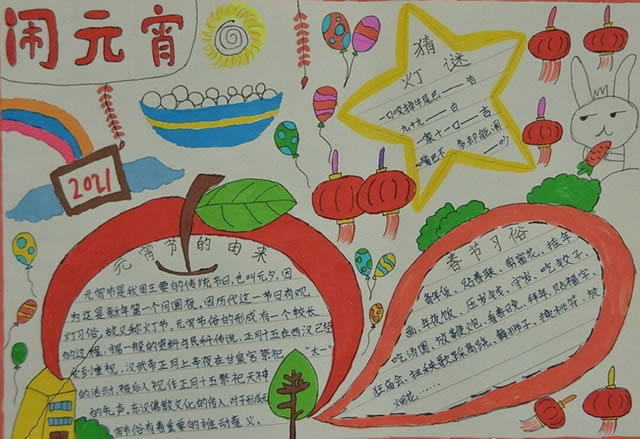 闹元宵
2021
猜灯谜
一口咬掉牛尾巴——告
九十九——白
一家十一口——吉
嘴巴不
——吵
元宵节的由来
元宵节是我国主要的传统节日,也叫元夕,因
为这是新年第一个月圆夜,因历代这一节日有观
灯习俗,故又称灯节,元宵节俗的形成有一个较长
的过程,据一般的资料与民俗传说,正月十五在西汉已经
受到重视,汉武帝正月上辛夜在甘泉宫祭祀"太一"
的活动,被后人视作正月十五祭祀天神
的先声,东汉佛教文化的传入,对于形成元
宵节俗有着重要的推动意义。
春节习俗
办年货、贴春联、剪窗花、挂年
画、年夜饭、压岁钱、守岁、吃饺子、
吃汤圆、放鞭炮、看春晚、拜年、贴福字、
逛庙会、扭秧歌踩高跷、舞狮子、换桃符、放
烟花……